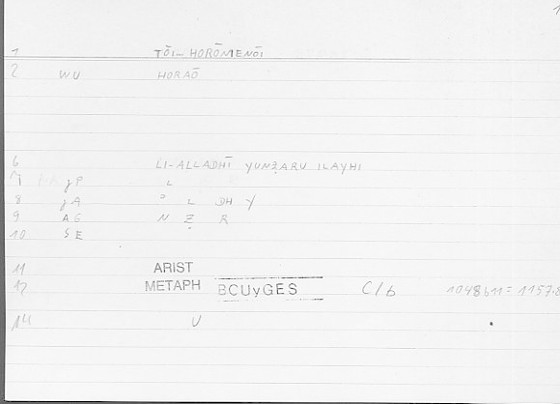 1 TŌI-HORŌMENŌI
2 WU HORAŌ
6 LI-ALLADHĪ YUNẒARU ILAYHI
7 gP L
8 gA ʾ L DH Y
9 AG N Ẓ R
10 SE
11 ARIST
12 METAPH BCUyGES C/b 1048b11=1157.8
14 U